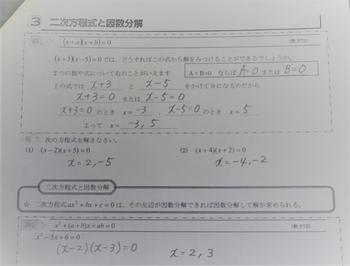 3 二次方程式と因数分解
(x+a)(x+b)=0
(x+3)(x-5)=0では、どうすればこの式から解をみつけることができるでしょうか。
2つの数や式について右のことがいえます
A×B=0 ならば A=0 または B=0
上の式では x+3 と x-5 をかけて0になるためだから
x+3=0 または x-5=0
x+3=0 のとき x= -3 x-5=0 のとき x= 5
よって x= -3, 5
次の方程式を解きなさい。
(1) (x-2)(x+5)=0 (2) (x+4)(x+2)=0
x=2,-5 x=-4,-2
二次方程式と因数分解
☆ 二次方程式 ax²+bx+c=0 は、その左辺が因数分解できれば因数分解して解が求められる。
x²+(a+b)x+ab=0
x²-5x+6=0
(x-2)(x-3)=0 x=2,3